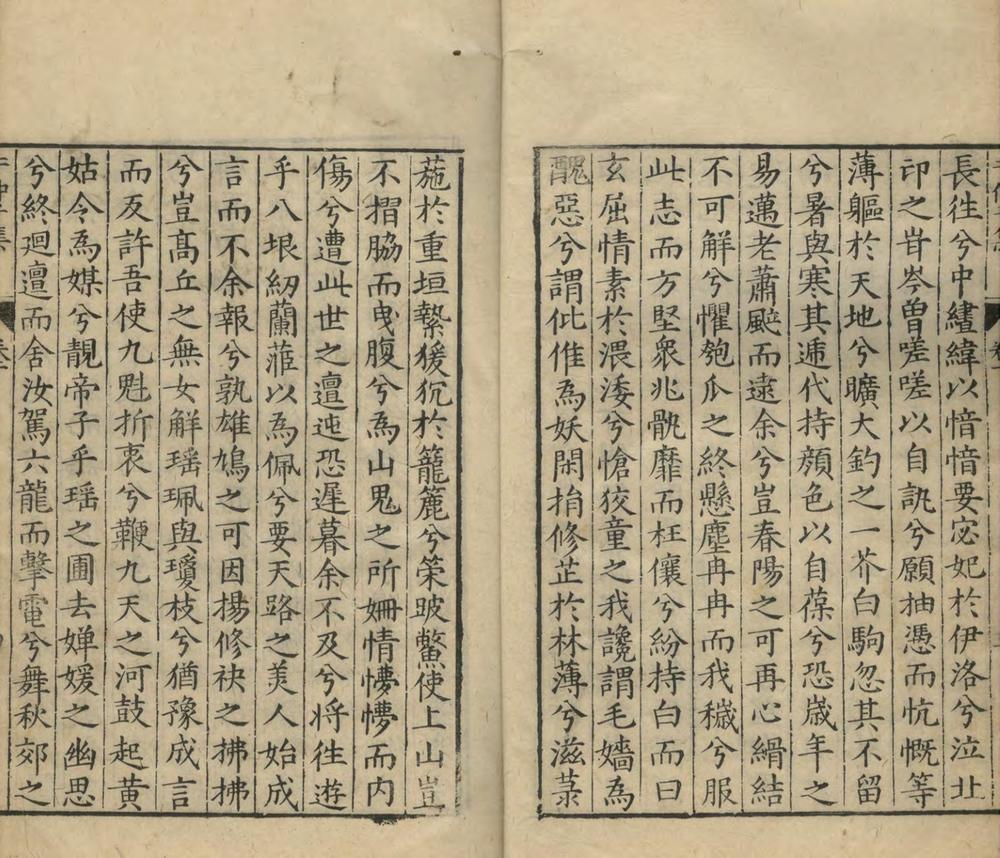 長徃兮中繣緯以愔愔要宓妃於伊洛兮泣北
印之岝岑曽嗟嗟以自訊兮願抽憑而忼慨等
薄軀於天地兮曠大鈞之一芥白駒忽其不留
兮暑與寒其逓代持顔色以自葆兮恐歳年之
易邁老蕭颼而逮余兮豈春陽之可再心縎結
不可解兮懼匏瓜之終懸塵冉冉而我穢兮服
此志而方堅衆兆骫靡而枉儴兮紛持白而曰
玄屈情素於渨涹兮愴狡童之我讒謂毛嬙為
醜惡兮謂仳倠為妖閑捐修芷於林薄兮滋菉
葹於重垣縶猨狖於籠簏兮䇿跛鱉使上山豈
不摺脇而曳腹兮為山鬼之所姍情懜懜而内
傷兮遭此世之邅迍恐遲暮余不及兮将徃遊
乎八垠紉蘭蓙以為佩兮要天路之美人始成
言而不余報兮孰雄鳩之可因揚修袂之拂拂
兮豈髙丘之無女解瑶珮與瓊枝兮猶豫成言
而反許吾使九魁折衷兮鞭九天之河鼓起黄
姑令為媒兮靚帝子乎瑶之圃去嬋媛之幽思
兮終廻邅而舍汝駕六龍而擊電兮舞秋郊之